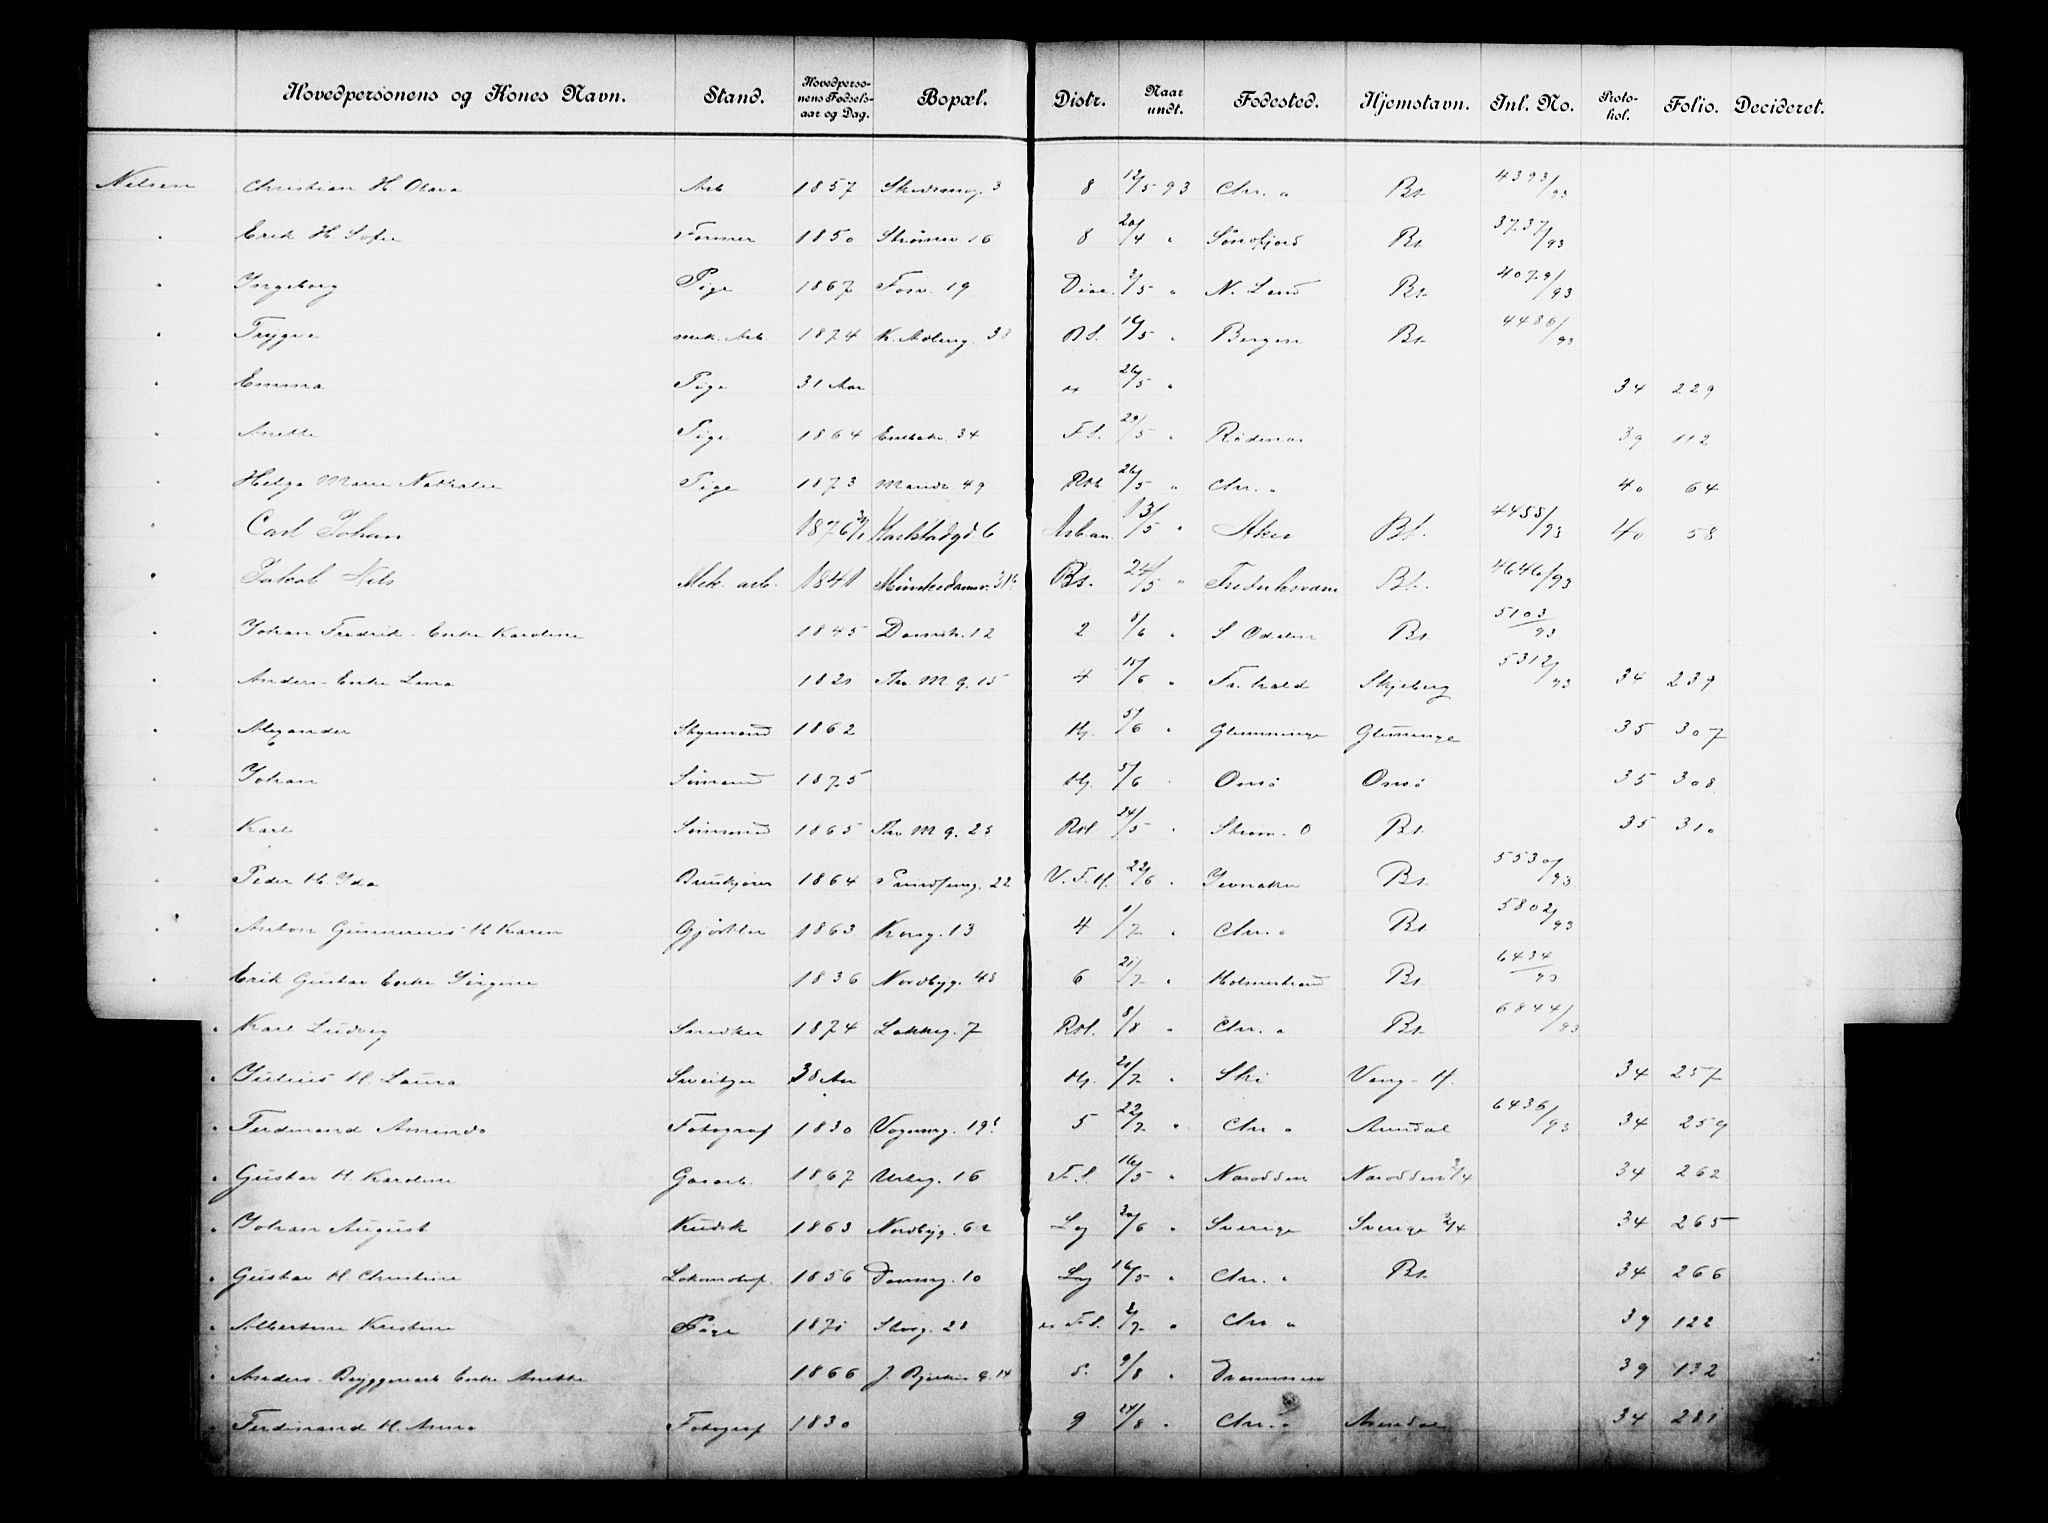 Hovedpersonens og Kones Navn. Stand. Hovedpersonens Fødselsaar og Dag. Bopæl. Distr. Naar undt. Fødested. Hjemstavn. Inl. No. Protokol. Folio. Decideret.
Nielsen Christian H Olava Arb 1857 3 8 12/5 93 Chr. a Bt. 4393/93
Erik H Sofie Former 1850 Strømsv. 16 8 20/4 " Søndfjord Bt. 3737/93
" Ingeborg Pige 1867 Fosv. 19 Diac. 3/5 " N. Land Bt. 4079/93
" Trygve mek. Arb. 1874 38 RH. 16/5 " Bergen Bt. 4486/93
" Emma Pige 31 Aar 26/5 " 34 229
" Anette Pige 1864 Enebakv. 34 F S. 29/5 " Rødenæs 39 112
" Helga Marie Nathalie Pige 1873 Maridv 49 RH 26/5 " Chr. a 40 64
" Carl Johan 1876 30/1 Karlstadgd. 6 13/5 " Aker Bt. 4455/93 40 58
" Jakob Nils Mek. arb. 1841 Munkedamsv. 31b Bt. 24/5 " Fredriksværn Bt. 4646/93
" Johan Fredrik - Enke Karoline 1845 Damstr. 12 2 8/6 " S Odalen Bt. 5103/93
" Anders - Enke Lina 1821 Thv M g. 15 4 15/6 " Fr. hald Skjeberg 5312/93 34 239
" Alexander Styrmand 1862 Hj. 5/6 " Glemminge Glemminge 35 307
" Johan Sømand 1875 Hj. 5/6 " Onsø Onsø 35 308
" Karl Sømand 1865 Thv M g. 25 RH. 24/5 " Strøm. O Bt. 35 310
" Peder H. Ida Bruskjører 1864 22 V. F. H. 22/6 " Jevnaker Bt. 5530/93
" Anton Gunnerius H Karen Gjørtler 1863 Korsg. 13 4 1/7 " Chr. a Bt. 5802/93
" Erik Gustav Enke Jørgine 1836 Nordbyg. 45 6 21/7 " Holmestrand Bt. 6434/93
" Karl Ludvig Snedker 1874 Løkkeg. 7 RH. 8/8 " Chr. a Bt. 6844/93
" Julius H. Laura Sveitzer 38 Aar Hj. 21/7 " Ski Vang - H. 34 257
" Ferdinand Amanda Fotograf 1830 Vognmg. 19b 5 22/7 " Chr a Arendal 6436/93 34 259
" Gustav H. Karoline Gasarb. 1867 Urteg. 16 F S. 16/5 " Næsodden Næsodden 3/4 34 262
" Johan August Kudsk 1863 Nordbyg. 62 Lg 20/6 " Sverige Sverige 3/4 34 265
" Gustav H. Christine Lokomotivf. 1856 10 Lg 16/5 " Chr. a Bt. 34 266
" Albertine Kristine Pige 1871 Storg. 28 F S. 2/7 " Chr a 39 122
" Anders - Bryggearb Enke Anette 1866 J. Bjerkes g. 14 9/8 " Drammen 39 132
" Ferdinand H. Anna Fotograf 1830 9 24/8 " Chr. a Arendal 34 281